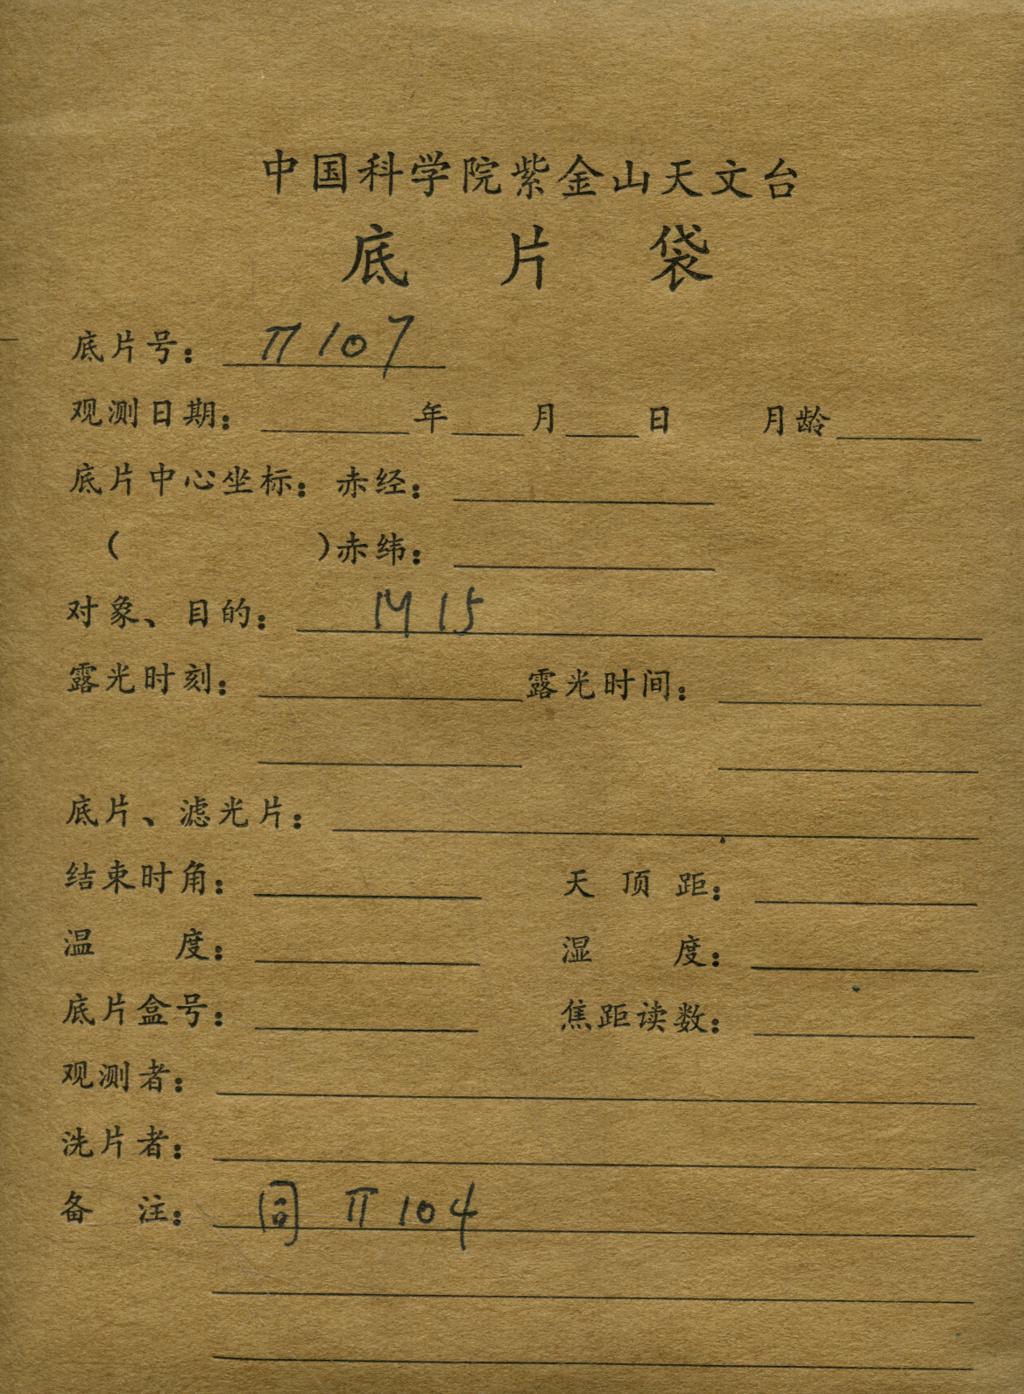 中国科学院紫金山天文台
底片袋
底片号： π107
观测日期： 年 月 日 月龄
底片中心坐标：赤经：
（ ）赤纬：
对象、目的： M15
露光时刻： 露光时间：
底片、滤光片：
结束时角： 天顶距：
温度： 湿度：
底片盒号： 焦距读数：
观测者：
洗片者：
备注： 同 π104